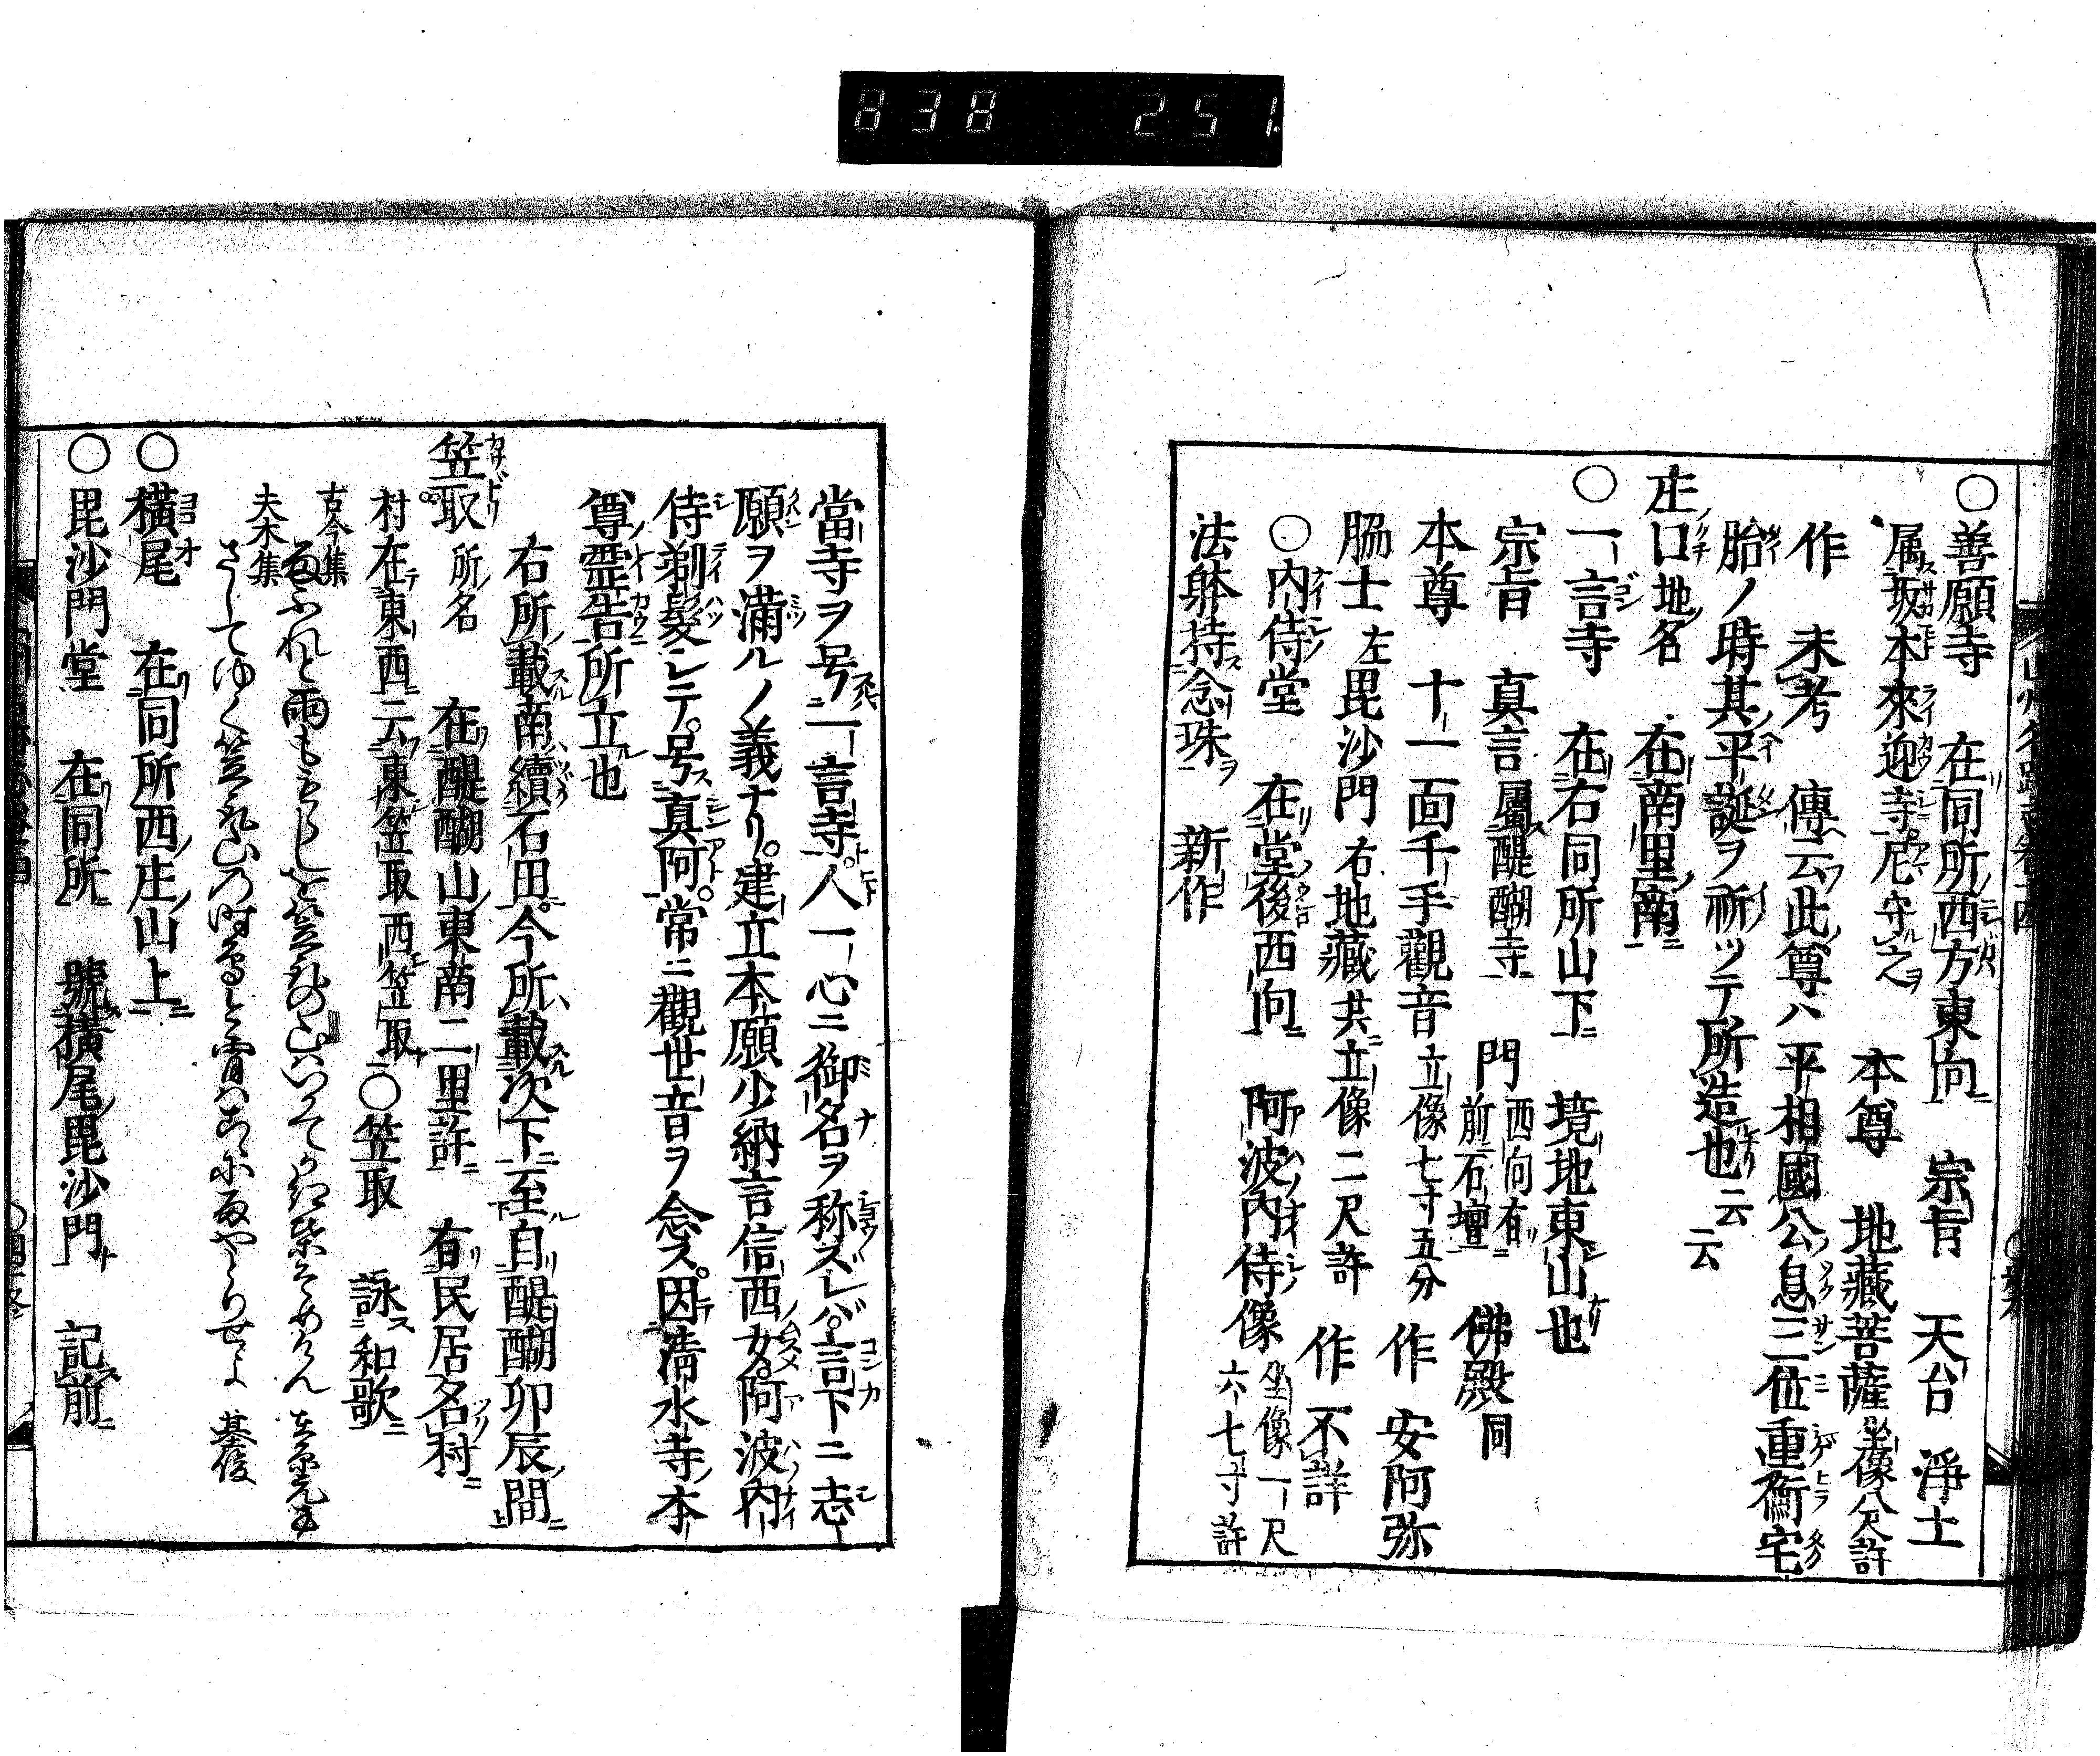 838 251
○善願寺 在同所西方東向 宗旨 天台 淨土
属坂本來迎寺尼守之 本尊 地藏菩薩 坐像八尺許
作 未考 傳云此尊ハ平相國公息三位重衡宅
胎ノ時其平誕ヲ祈ツテ所造也云云
庄口 地名 在南里南
○一言寺 在右同所山下 境地東山也
宗旨 真言属醍醐寺 門 西向有前石壇 佛殿 同
本尊 十一面千手觀音 立像七寸五分 作 安阿弥
脇士 左毘沙門 右地藏 共立像二尺許 作 不詳
○内侍堂 在堂後西向 阿波内侍像 坐像一尺六七寸許
法躰持念珠 新作
當寺ヲ号一言寺人一心ニ御名ヲ称ズレバ言下ニ志
願ヲ滿ルノ義ナリ建立本願少納言信西女阿波内
侍剃髮シテ号真阿常ニ觀世音ヲ念ス因清水寺本
尊霊告所立也
右所載南續石田今所載次下至自醍醐卯辰間
笠取 所名 在醍醐山東南二里許 有民居名村
村在東西云東笠取西笠取○笠取 詠和歌
古今集 雨ふれと笠とりの山 在原元方
夫木集 さしてゆく笠とり山の 基俊
○横尾 在同所西庄山上
○毘沙門堂 在同所 號横尾毘沙門 記前